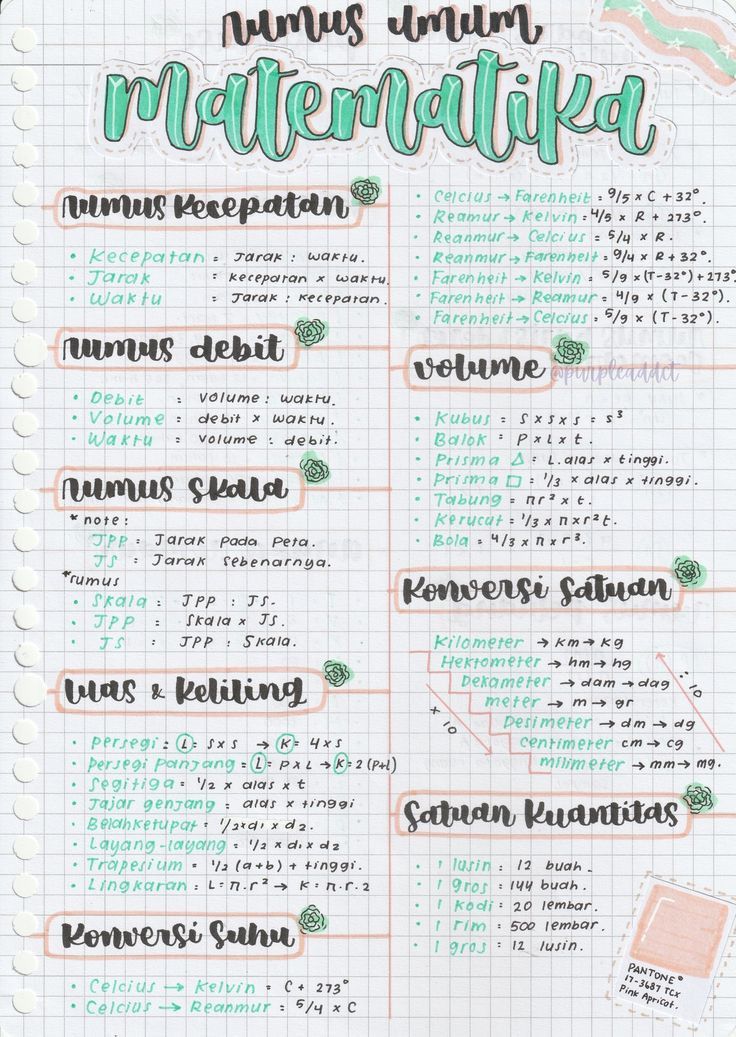 rumus umum
matematika
rumus Kecepatan
• Kecepatan = Jarak : waktu.
• Jarak = kecepatan x waktu.
• Waktu = Jarak : kecepatan.
rumus debit
• Debit : Volume : waktu.
• Volume = debit x waktu.
• Waktu = volume : debit.
rumus Skala
*note :
JPP = Jarak Pada Peta.
JS = Jarak Sebenarnya.
*rumus
• Skala : JPP : JS.
• JPP = Skala x JS.
• JS : JPP : Skala.
Luas & Keliling
• Persegi : L = S x S → K = 4 x S
• Persegi Panjang = L = P x L → K = 2 (P+L)
• Segitiga = 1/2 x alas x t
• Jajar genjang : alas x tinggi
• Belahketupat = 1/2 x d1 x d2.
• Layang-layang = 1/2 x d1 x d2
• Trapesium = 1/2 (a+b) + tinggi.
• Lingkaran : L = π.r² → K = π.r.2
Konversi Suhu
• Celcius → Kelvin = C + 273°
• Celcius → Reanmur = 5/4 x C
• Celcius → Farenheit = 9/5 x C + 32°.
• Reamur → Kelvin = 4/5 x R + 273°.
• Reanmur → Celcius = 5/4 x R.
• Reanmur → Farenheit = 9/4 x R + 32°.
• Farenheit → Kelvin = 5/9 x (T-32°) + 273°
• Farenheit → Reamur = 4/9 x (T-32°).
• Farenheit → Celcius = 5/9 x (T-32°).
Volume
@purpleaddct
• Kubus = S x S x S = S³
• Balok = P x L x t.
• Prisma △ = L.alas x tinggi.
• Prisma □ = 1/3 x alas x tinggi.
• Tabung = πr² x t.
• Kerucut = 1/3 x π x r² t.
• Bola = 4/3 x π x r³.
Konversi Satuan
Kilometer → km → kg
Hektometer → hm → hg
Dekameter → dam → dag
meter → m → gr
Desimeter → dm → dg
centimeter cm → cg
milimeter → mm → mg.
x 10
: 10
Satuan Kuantitas
• 1 lusin = 12 buah.
• 1 gros = 144 buah.
• 1 Kodi = 20 lembar.
• 1 rim = 500 lembar.
• 1 gros = 12 lusin.
PANTONE®
17-3687 TCX
Pink Apricot.